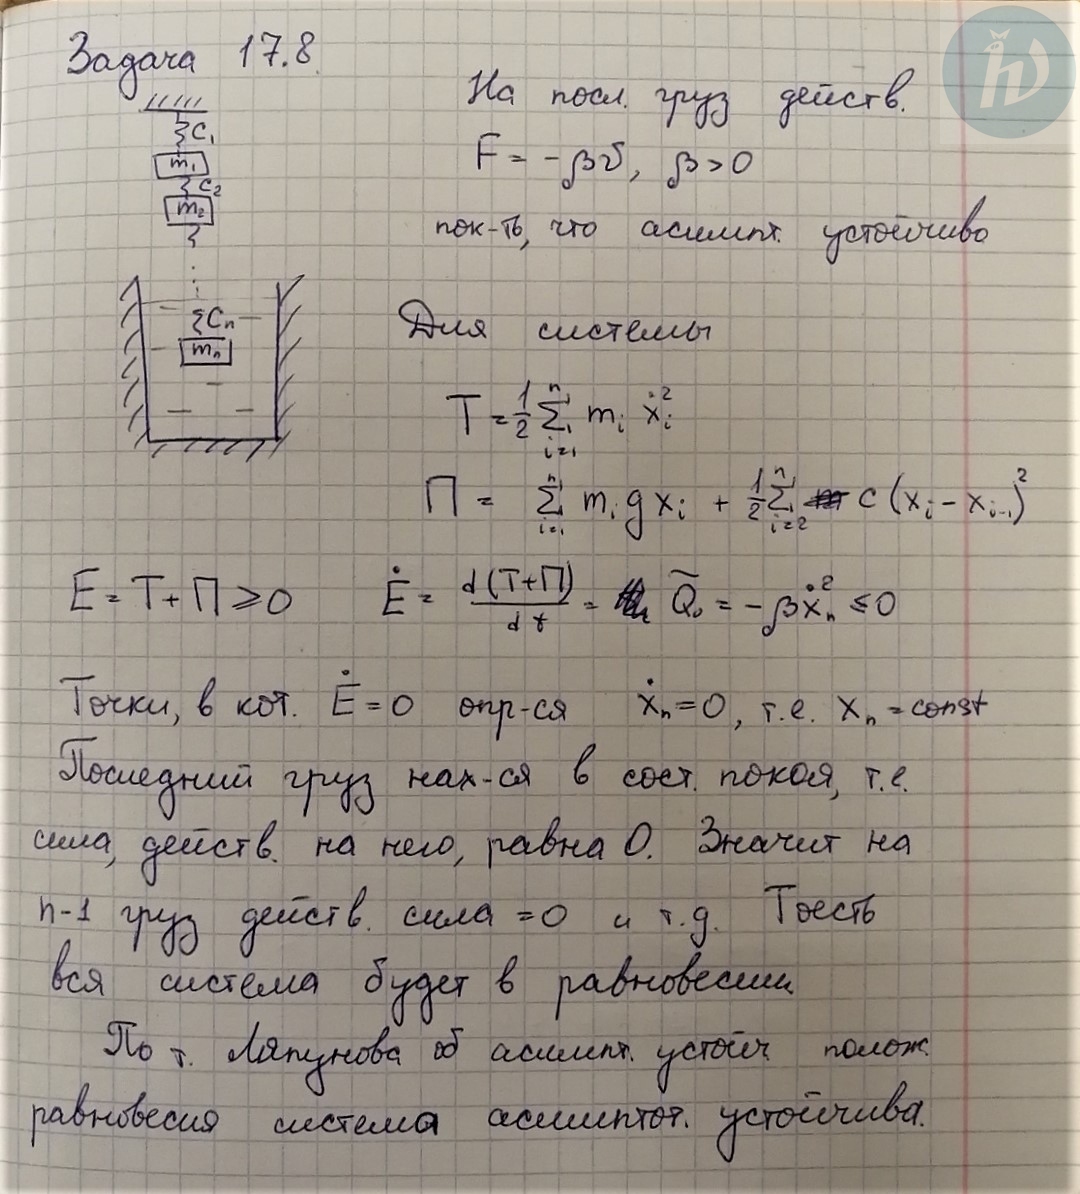 Задача 17.8
На посл. груз действ.
F = -βV, β > 0
пок-ть, что асимпт. устойчиво
C₁
m₁
C₂
m₂
Cₙ
mₙ
Для системы
T = 1/2 Σᵢ₌₁ⁿ mᵢ ẋᵢ²
П = Σᵢ₌₁ⁿ mᵢ g xᵢ + 1/2 Σᵢ₌₂ⁿ c (xᵢ - xᵢ₋₁)²
E = T + П ≥ 0 Ė = d(T+П)/dt = Q̃₀ = -βẋₙ² ≤ 0
Точки, в кот. Ė = 0 опр-ся ẋₙ = 0, т.е. xₙ = const
Последний груз нах-ся в сост. покоя, т.е.
сила, действ. на него, равна 0. Значит на
n-1 груз действ. сила = 0 и т.д. Тоесть
вся система будет в равновесии.
По т. Ляпунова об асимпт. устойч полож.
равновесия система асимптот. устойчива.